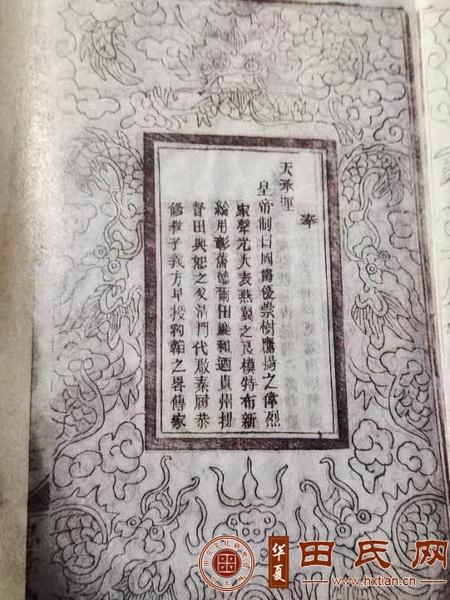 奉
天承運
皇帝制曰國爵優崇樹鷹揚之偉烈
家聲光大表燕翼之良模特布新
綸用彰舊德爾田和迺貴州提
督田興恕之父清門代啟素履恭
修教子義方早授豹韜之畧傳家
华夏
田氏网
www.hxtian.cn